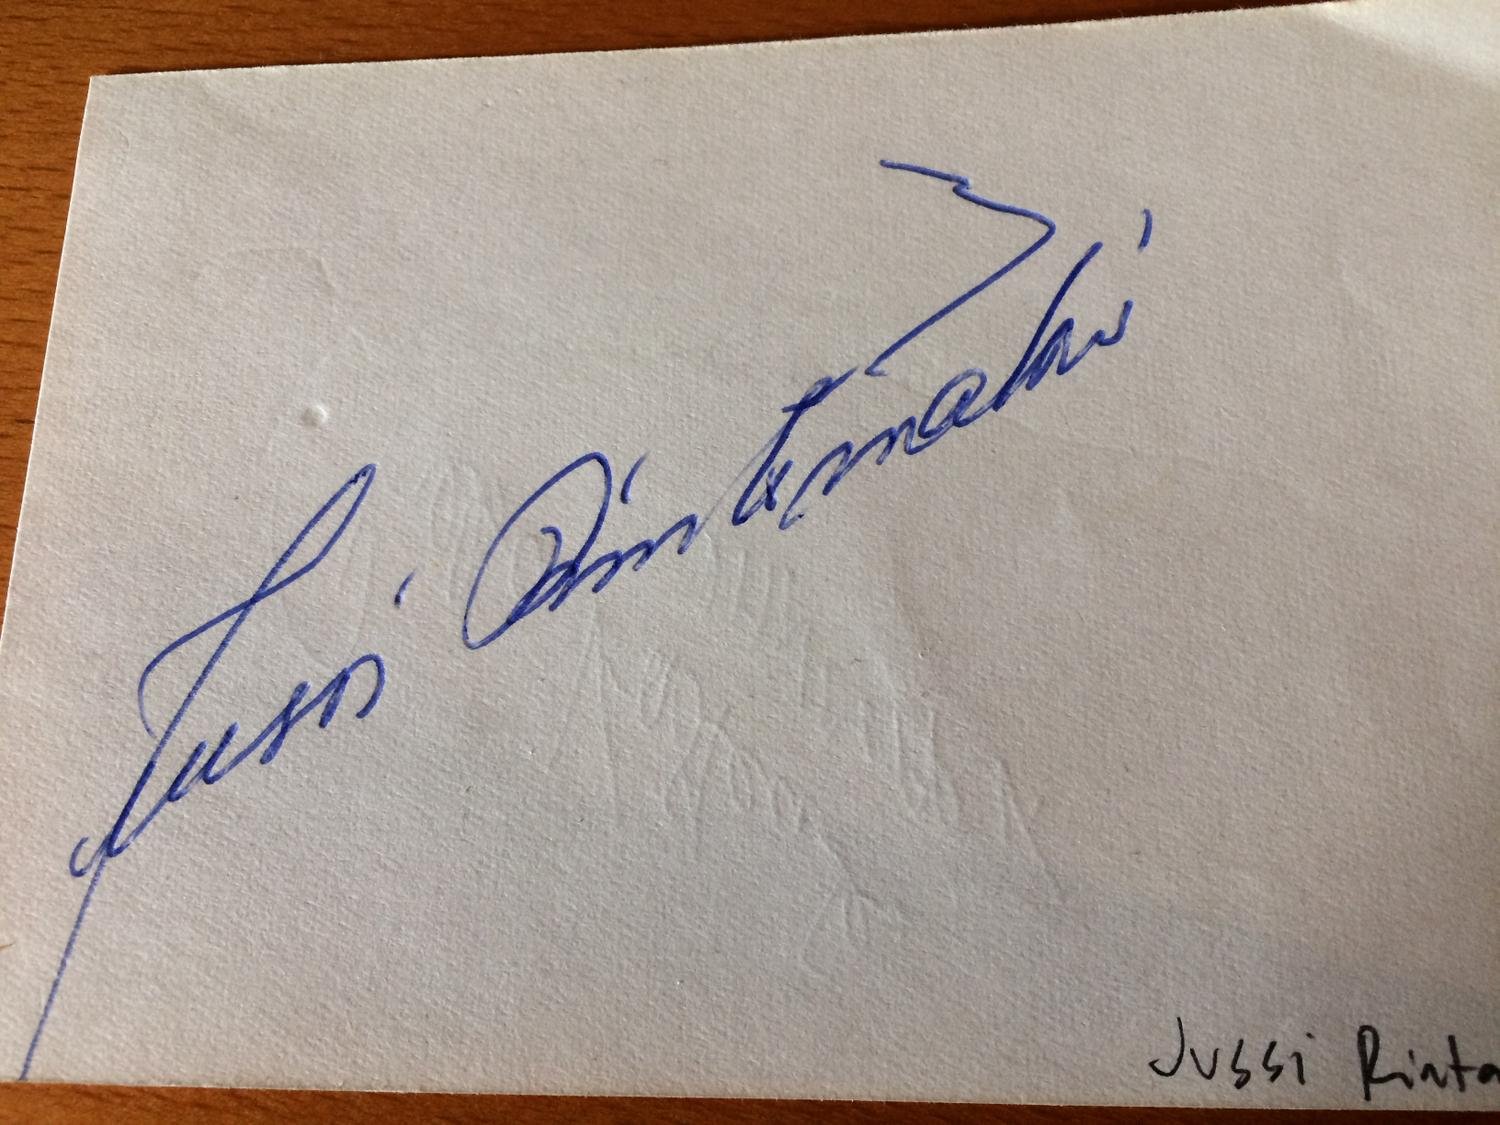 Jussi Rintamäki
Jussi Rinta